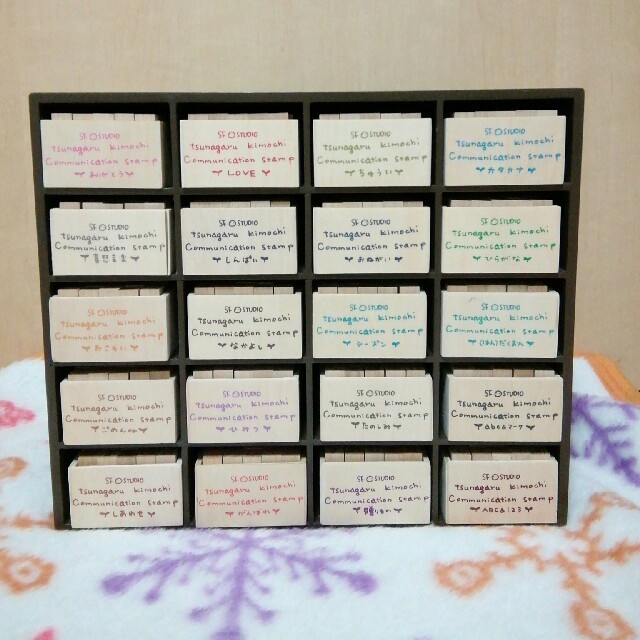 SF STUDIO
Tsunagaru kimochi
Communication stamp
ありがとう
SF STUDIO
Tsunagaru kimochi
Communication stamp
LOVE
SF STUDIO
Tsunagaru kimochi
Communication stamp
ちゅうい
SF STUDIO
Tsunagaru kimochi
Communication stamp
カタカナ
SF STUDIO
Tsunagaru kimochi
Communication stamp
SF STUDIO
Tsunagaru kimochi
Communication stamp
しんぱい
SF STUDIO
Tsunagaru kimochi
Communication stamp
おねがい
SF STUDIO
Tsunagaru kimochi
Communication stamp
ひらがな
SF STUDIO
Tsunagaru kimochi
Communication stamp
SF STUDIO
Tsunagaru kimochi
Communication stamp
なかよし
SF STUDIO
Tsunagaru kimochi
Communication stamp
シーズン
SF STUDIO
Tsunagaru kimochi
Communication stamp
SF STUDIO
Tsunagaru kimochi
Communication stamp
ごめんね
SF STUDIO
Tsunagaru kimochi
Communication stamp
ひみつ
SF STUDIO
Tsunagaru kimochi
Communication stamp
たのしみ
SF STUDIO
Tsunagaru kimochi
Communication stamp
abc&マーク
SF STUDIO
Tsunagaru kimochi
Communication stamp
しあわせ
SF STUDIO
Tsunagaru kimochi
Communication stamp
がんばれ
SF STUDIO
Tsunagaru kimochi
Communication stamp
SF STUDIO
Tsunagaru kimochi
Communication stamp
ABC&123